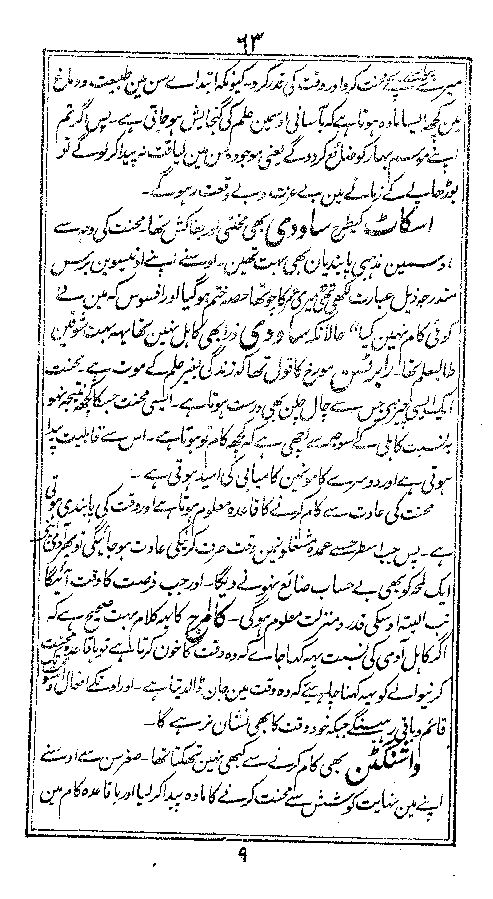 ۶۳
میرے پیارے بچو محنت کرو اور وقت کی قدر کرو۔ کیونکہ ابتداے سن مین طبیعت و دماغ
مین کچھ ایسا مادہ ہوتا ہے کہ بآسانی اوسمین علم کی گنجایش ہو جاتی ہے۔ پس اگر تم
اپنے موسم بہار کو ضائع کردوگے یعنی موجودہ سن مین لیاقت نہ پیدا کرلوگے تو
بوڑھاپے کے زمانے مین بے عزت و بے وقعت رہوگے۔
اسکاٹ کیطرح ساودی بھی محنتی اور جفاکش تھا۔ محنت کی وجہ سے
اوسمین مذہبی پابندیان بھی بہت تھین۔ اوسنے اپنے اونیسوین برس
مندرجہ ذیل عبارت لکھی تھی "میری عمر کا چوتھا حصہ ختم ہوگیا اور افسوس کہ مین نے
کوئی کام نہین کیا" حالانکہ ساودی ذرا بھی کاہل نہین تھا یہ بہت شوقین
طالبعلم تھا۔ رابرٹسن مورخ کا قول تھا کہ زندگی بغیر علم کے موت ہے۔ محنت
ایک ایسی چیز ہے جس سے چال چلن بھی درست ہوتا ہے۔ ایسی محنت جسکا کچھ نتیجہ نہو
بہ نسبت کاہلی کے اسوجہ سے اچھی ہے کہ کچھ کام تو ہوتا ہے۔ اس سے قابلیت پیدا
ہوتی ہے اور دوسرے کامونمین کامیابی کی امید ہوتی ہے۔
محنت کی عادت سے کام کرنے کا قاعدہ معلوم ہوتا ہے اور وقت کی پابندی ہوتی
ہے۔ پس جب اسطرح سے عمدہ مشغلونمین وقت صرف کرنیکی عادت ہوجائیگی تو پھر آدمی
ایک لمحہ کو بھی بے حساب ضائع نہونے دیگا۔ اور جب فرصت کا وقت آئیگا
تب البتہ اوسکی قدر و منزلت معلوم ہوگی۔ کالرج کا یہ کلام بہت صحیح ہے کہ
اگر کاہل آدمی کی نسبت یہ کہا جاے کہ وہ وقت کا خون کرتا ہے تو باقاعدہ محنت
کرنیوالے کو یہ کہنا چاہیے کہ وہ وقت مین جان ڈالدیتا ہے۔ اور اوسکے افعال اوسوقت
قائم و باقی رہینگے جبکہ خود وقت کا بھی نشان نرہے گا۔
واشنگٹن بھی کام کرنے سے کبھی نہین تھکتا تھا۔ صغر سن سے اوسنے
اپنے مین نہایت کوشش سے محنت کرنے کا مادہ پیدا کرلیا اور باقاعدہ کام مین
۹